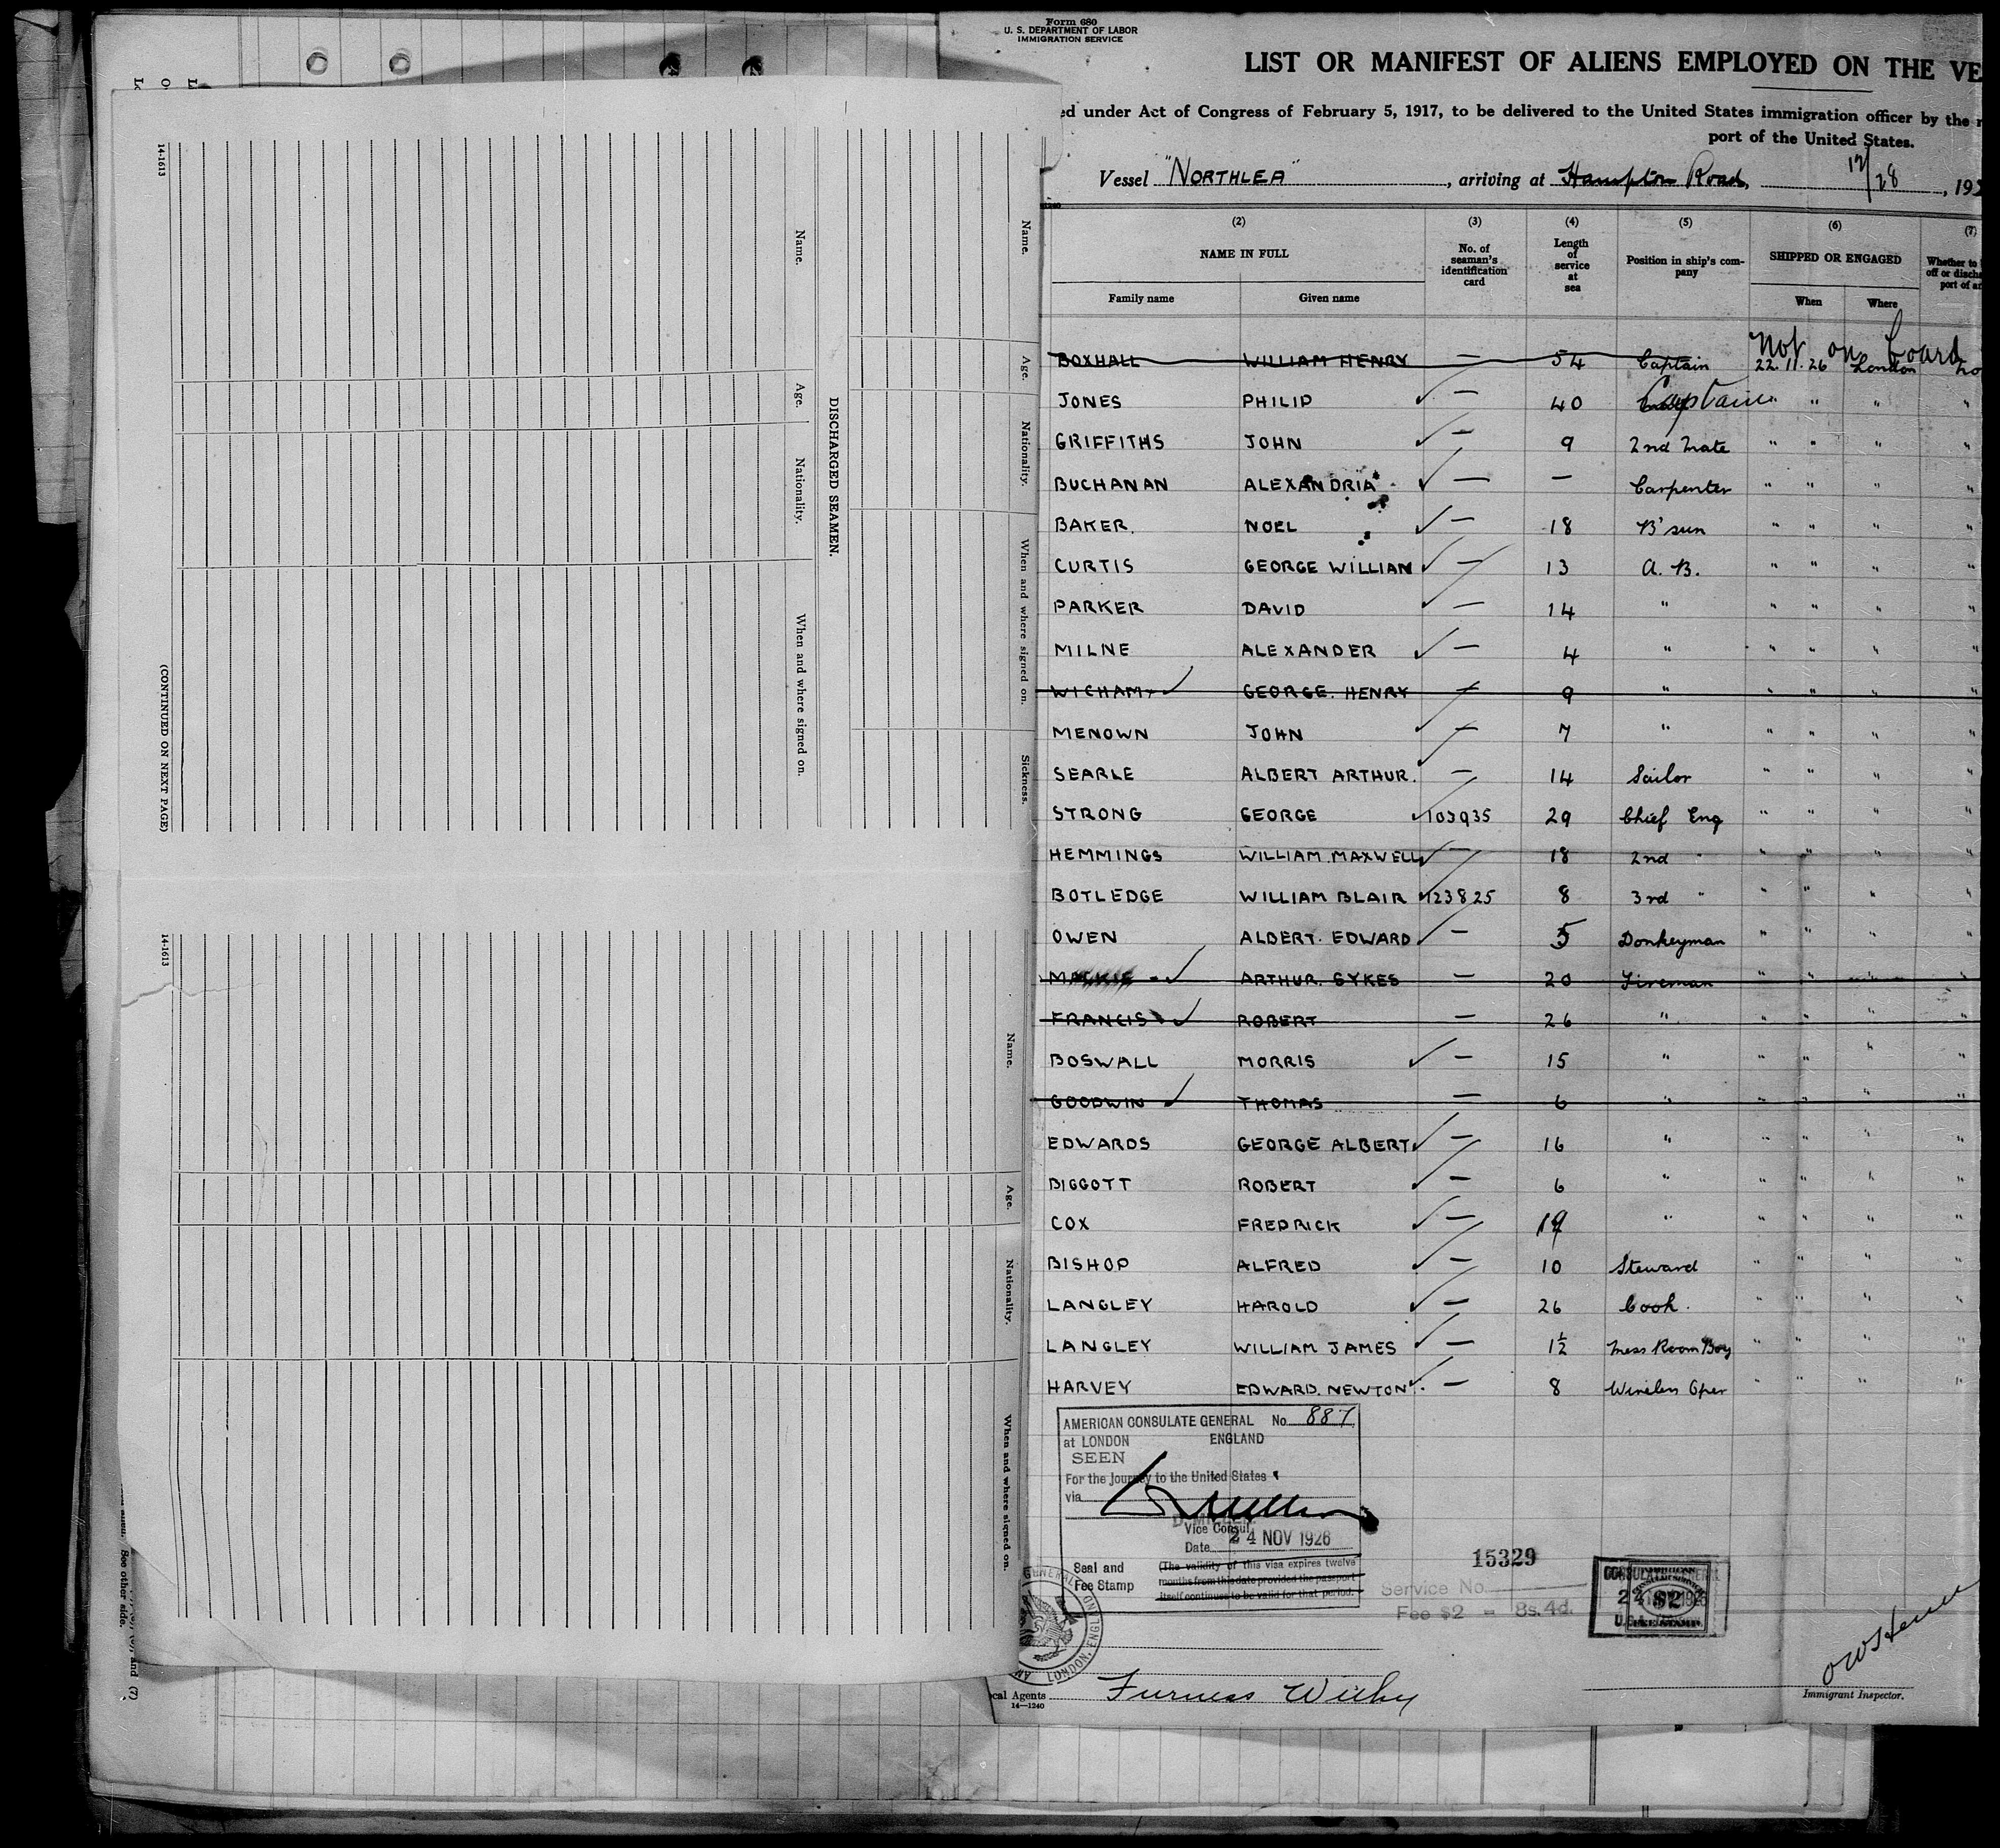 Form 680
U. S. DEPARTMENT OF LABOR
IMMIGRATION SERVICE
LIST OR MANIFEST OF ALIENS EMPLOYED ON THE VE
ed under Act of Congress of February 5, 1917, to be delivered to the United States immigration officer by the
port of the United States.
Vessel "NORTHLEA", arriving at Hampton Roads, 12/28, 192
(2) (3) (4) (5) (6) (7)
NAME IN FULL
Family name Given name
No. of seaman's identification card
Length of service at sea
Position in ship's company
SHIPPED OR ENGAGED
When Where
Whether to
off or discha
port of ar
not on board
BOXHALL WILLIAM HENRY — 54 Captain 22.11.26 London no
JONES PHILIP ✓ — 40 Captain " " " "
GRIFFITHS JOHN ✓ — 9 2nd Mate " " " "
BUCHANAN ALEXANDRIA ✓ — — Carpenter " " " "
BAKER. NOEL ✓ — 18 B'sun " " " "
CURTIS GEORGE WILLIAM ✓ — 13 A. B. " " " "
PARKER DAVID ✓ — 14 " " " " "
MILNE ALEXANDER ✓ — 4 " " " " "
WICHAM ✓ GEORGE. HENRY — 9 " " " " "
MENOWN JOHN ✓ — 7 " " " " "
SEARLE ALBERT ARTHUR. ✓ — 14 Sailor " " " "
STRONG GEORGE ✓ 103935 29 Chief Eng " " " "
HEMMINGS WILLIAM. MAXWELL ✓ — 18 2nd " " " " "
BOTLEDGE WILLIAM BLAIR ✓ 123825 8 3rd " " " " "
OWEN ALBERT. EDWARD ✓ — 5 Donkeyman " " " "
MACKIE ✓ ARTHUR. SYKES — 20 Fireman " " " "
FRANCIS ✓ ROBERT — 26 " " " " "
BOSWALL MORRIS ✓ — 15 " " " " "
GOODWIN ✓ THOMAS — 6 " " " " "
EDWARDS GEORGE ALBERT ✓ — 16 " " " " "
BIGGOTT ROBERT ✓ — 6 " " " " "
COX FREDRICK ✓ — 19 " " " " "
BISHOP ALFRED ✓ — 10 Steward " " " "
LANGLEY HAROLD ✓ — 26 Cook. " " " "
LANGLEY WILLIAM JAMES ✓ — 1½ Mess Room Boy " " " "
HARVEY EDWARD. NEWTON ✓ — 8 Wireless Oper " " " "
AMERICAN CONSULATE GENERAL No. 887
at LONDON ENGLAND
SEEN
For the journey to the United States
via
D. MILLER
Vice Consul
Date 24 NOV 1926
Seal and Fee Stamp
(The validity of this visa expires twelve
months from this date provided the passport
itself continues to be valid for that period.)
15329
Service No.
Fee $2 = 8s. 4d.
$2
LONDON, ENGLAND
cal Agents Furness Withy
14—1240
Immigrant Inspector.
14-1613
Name. Age. Nationality. When and where signed on. Sickness.
DISCHARGED SEAMEN.
Name. Age. Nationality. When and where signed on.
(CONTINUED ON NEXT PAGE)
14-1613
Name. Age. Nationality. When and where signed on.
See other side.
and (7)